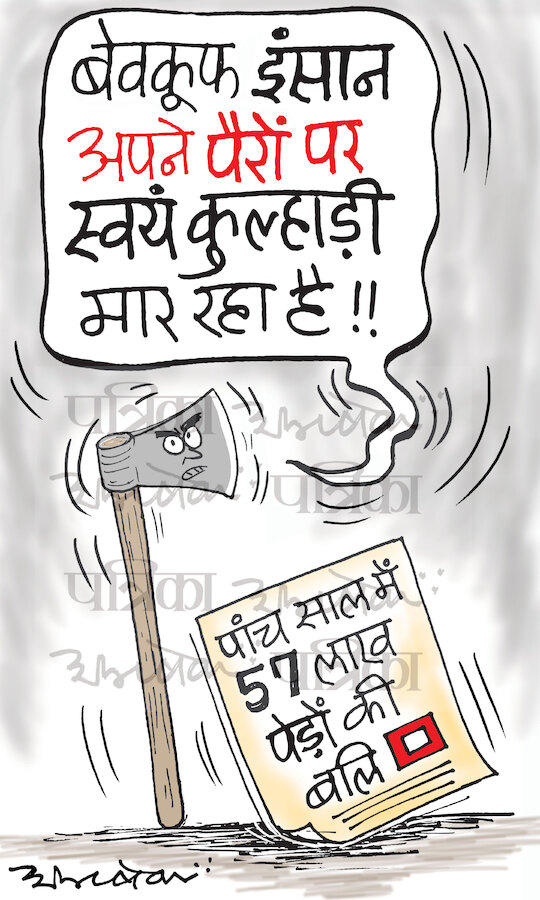 बेवकूफ इंसान
अपने पैरों पर
स्वयं कुल्हाड़ी
मार रहा है !!
पत्रिका
पत्रिका
पत्रिका
पत्रिका
पांच साल में
57 लाख
पेड़ों की
बलि